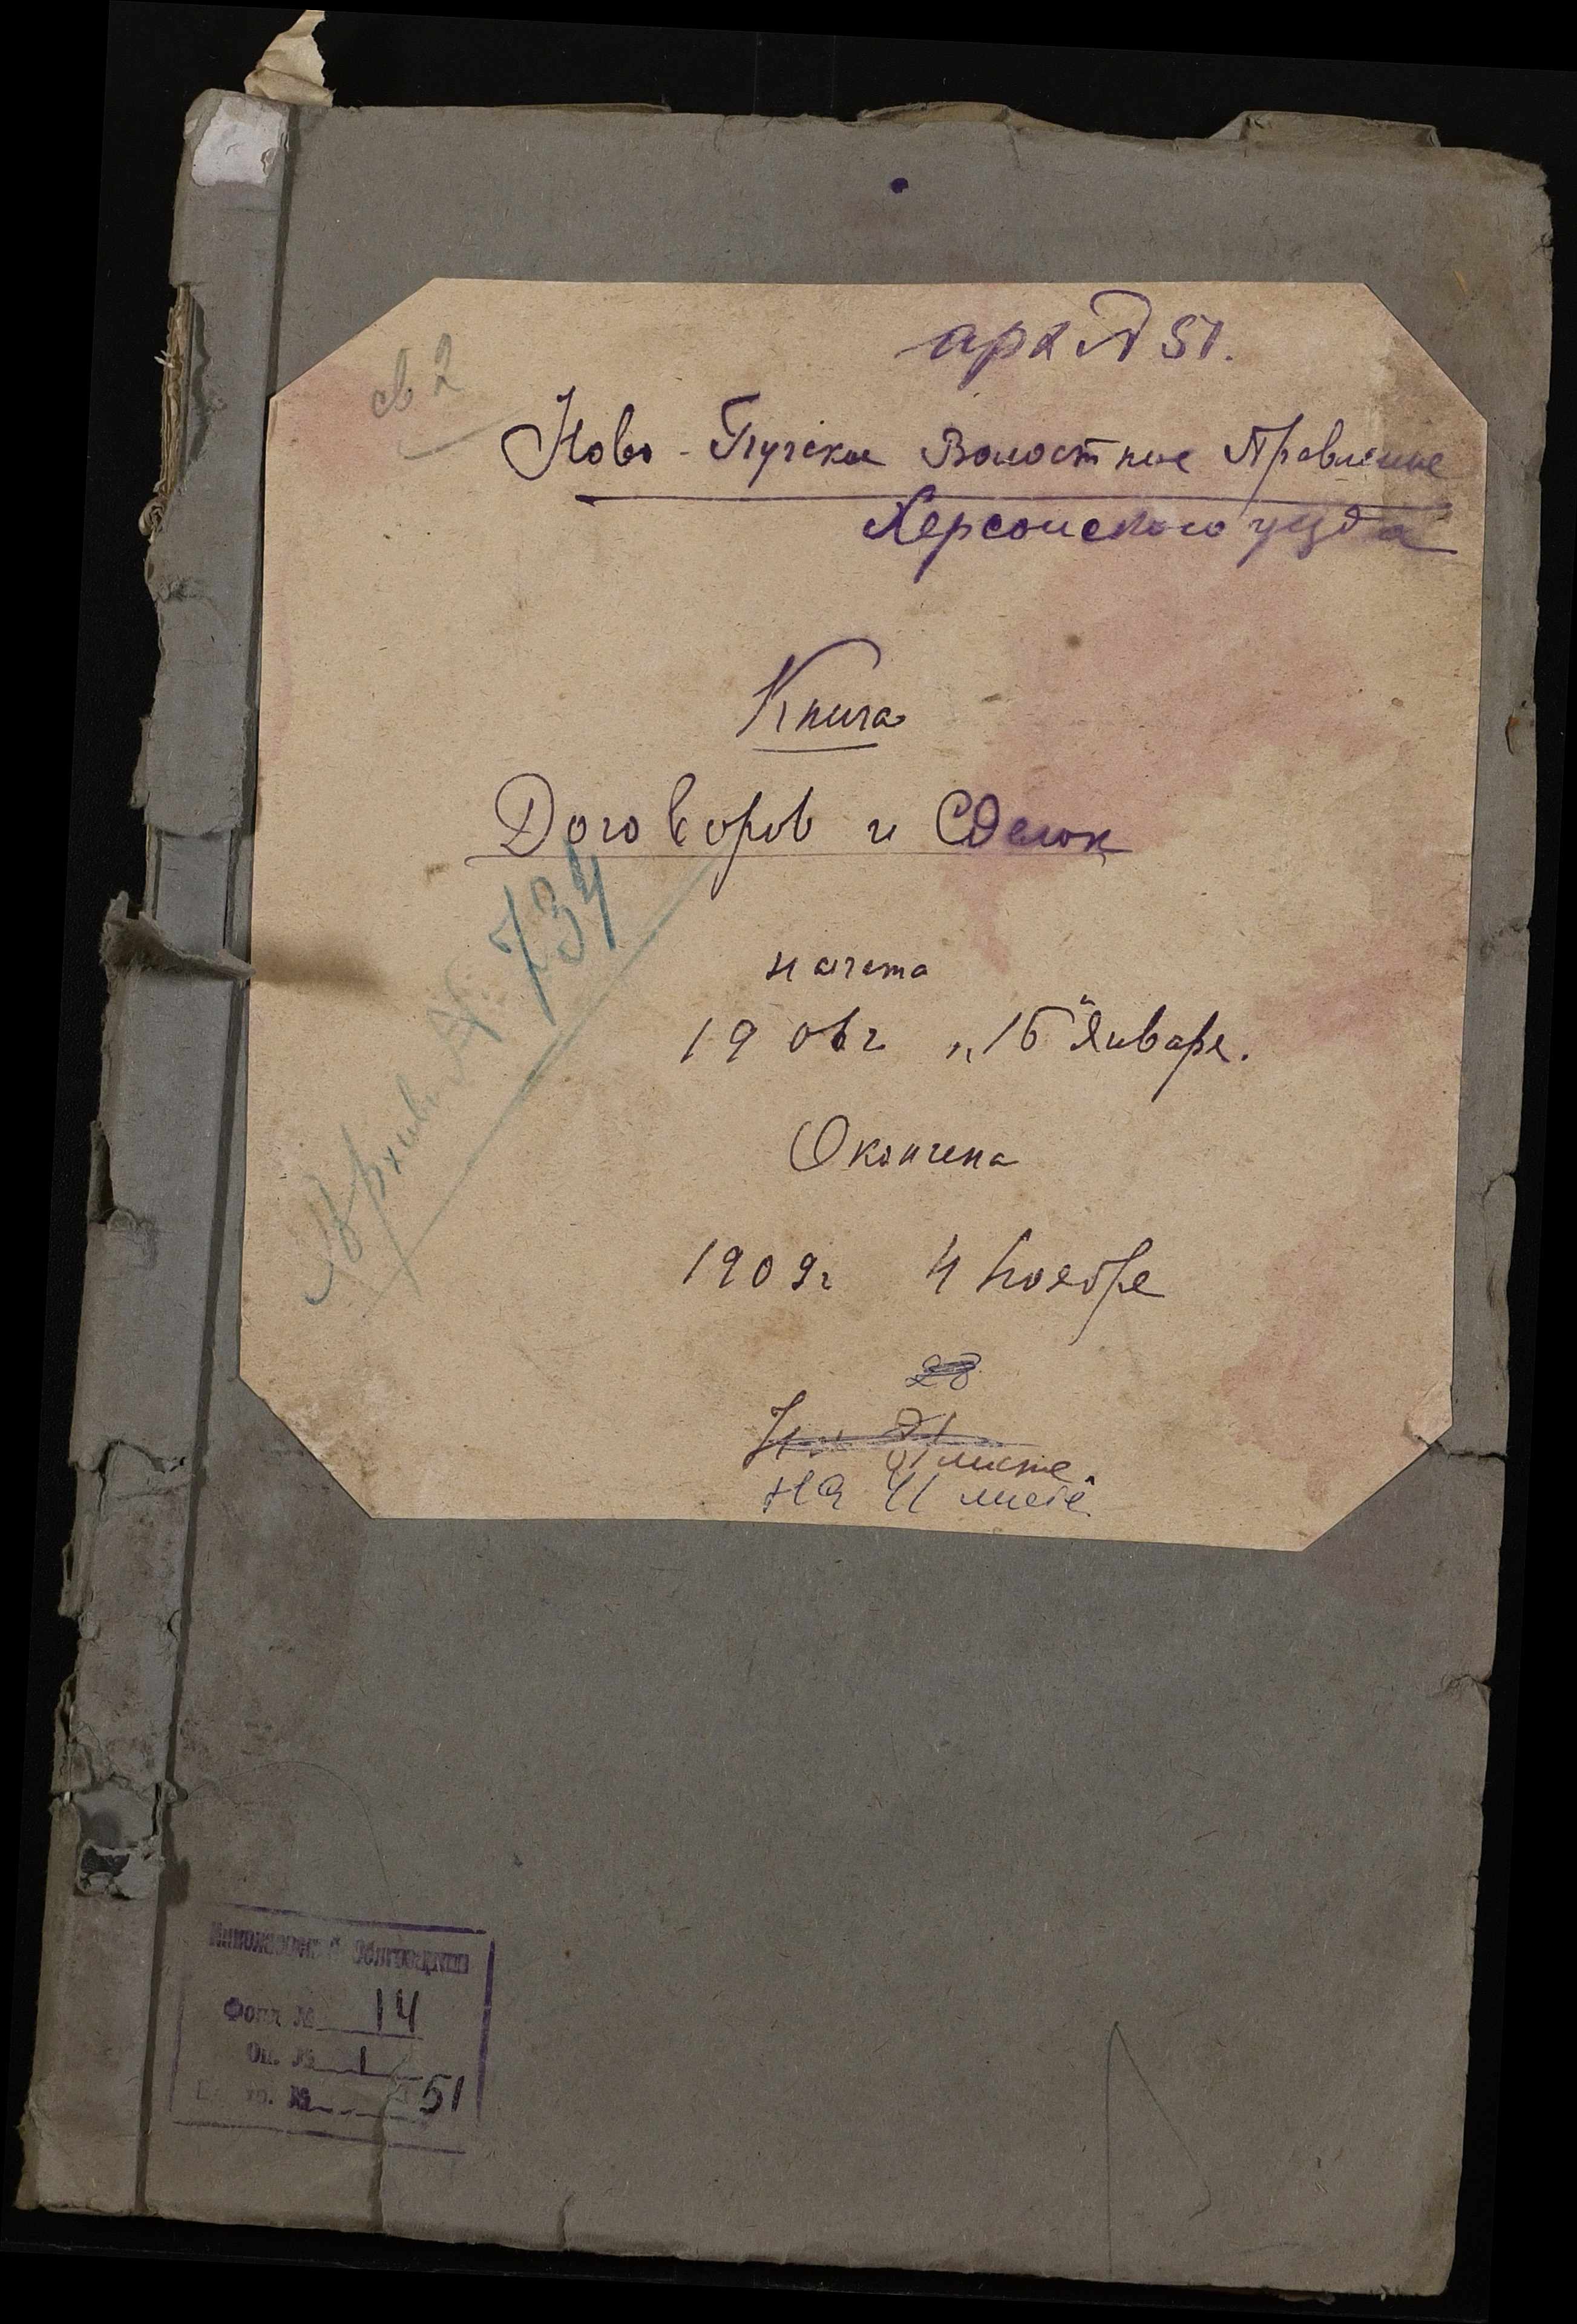 арх № 51.
св 2
Ново-Бугское Волостное Правление
Херсонского уезда
Книга
Договоров и Сделок
Архив № 734
начата
1906 г „15" Января.
Окончена
1909 г 4 Ноября
28
31 листе
на 41 листе
Николаевский Облгосархив
Фонд № 14
Оп. № 1
Ед. хр. № 51